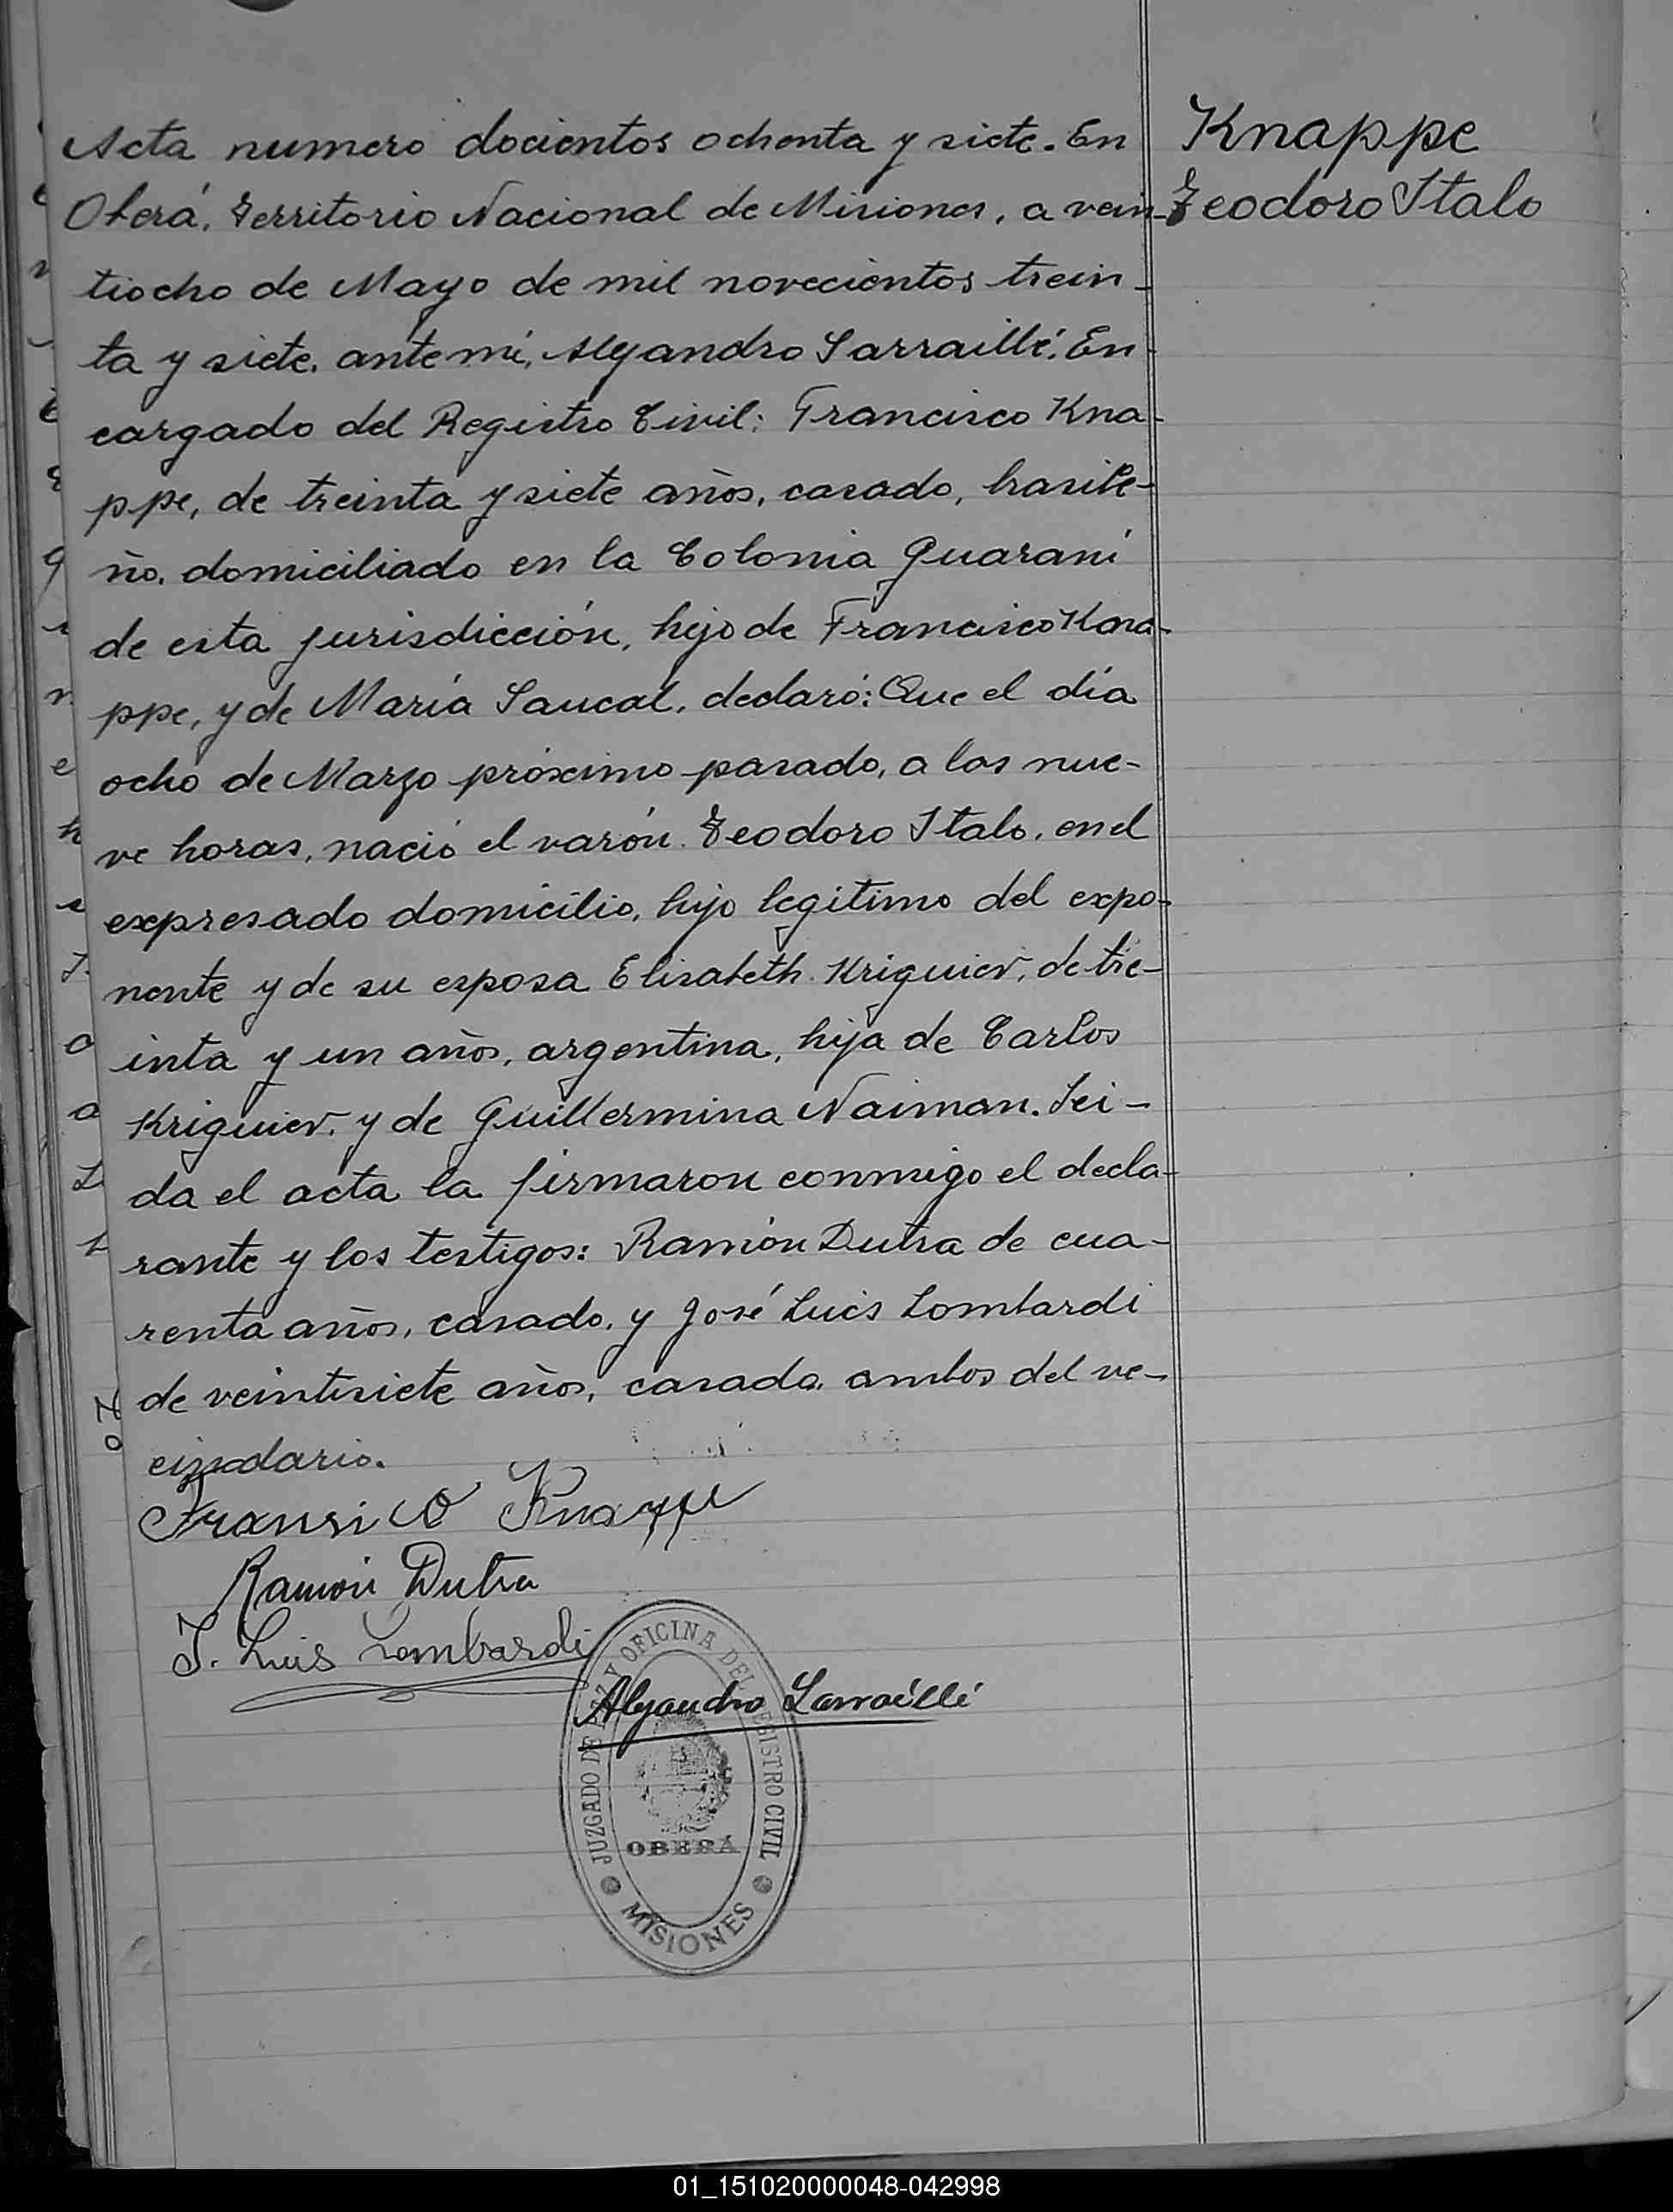 Acta numero docientos ochenta y siete. En
Oberá, Territorio Nacional de Misiones, a vein-
tiocho de Mayo de mil novecientos trein-
ta y siete, ante mí, Alejandro Sarraillé, En-
cargado del Registro Civil: Francisco Kna-
ppe, de treinta y siete años, casado, brasile-
ño, domiciliado en la Colonia Guaraní
de esta jurisdicción, hijo de Francisco Kna-
ppe, y de María Saucal, declaró: Que el día
ocho de Marzo próximo pasado, a las nue-
ve horas, nació el varón Teodoro Italo, en el
expresado domicilio, hijo legitimo del expo-
nente y de su esposa Elisabeth Kriguier, de tre-
inta y un años, argentina, hija de Carlos
Kriguier, y de Guillermina Naiman. Lei-
da el acta la firmaron conmigo el decla-
rante y los testigos: Ramón Dutra de cua-
renta años, casado, y José Luis Lombardi
de veintisiete años, casado, ambos del ve-
cindario.
Knappe
Teodoro Italo
Fransico Knappe
Ramón Dutra
J. Luis Lombardi
Alejandro Sarraillé
JUZGADO DE PAZ Y OFICINA DEL REGISTRO CIVIL
OBERÁ
MISIONES
01_151020000048-042998